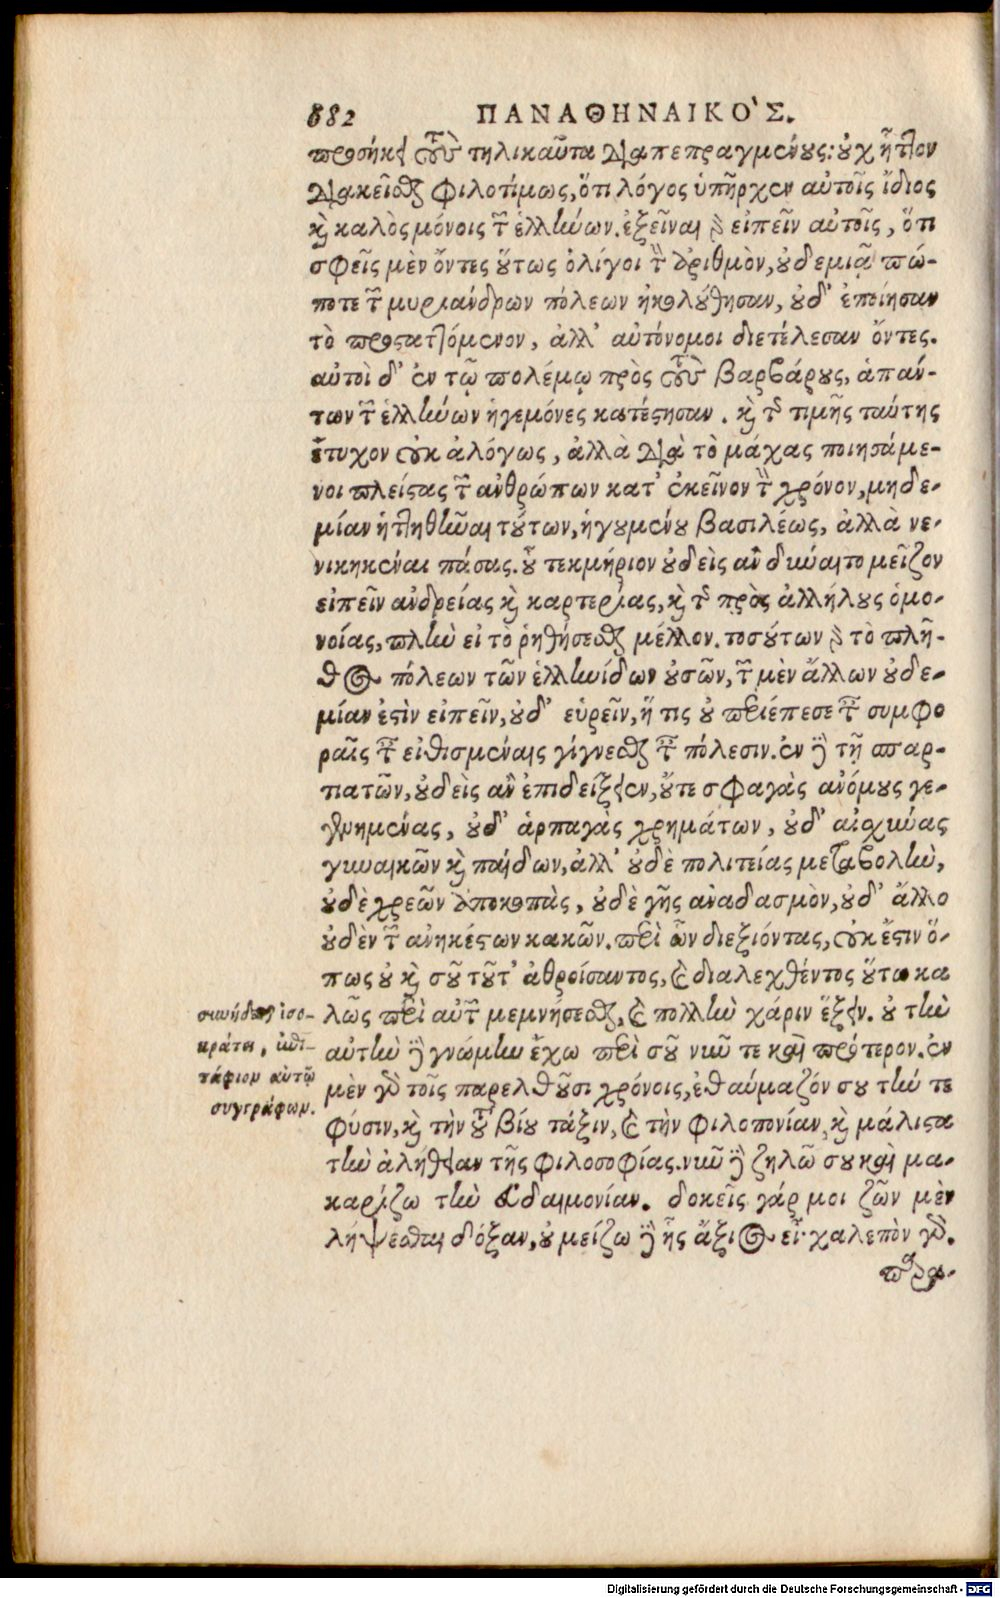 682 ΠΑΝΑΘΗΝΑΙΚΟ'Σ.
προσήκει τοὺς τηλικαῦτα διαπεπραγμένους: οὐχ ἧττον
διακεῖσθαι φιλοτίμως, ὅτι λόγος ὑπῆρχεν αὐτοῖς ἴδιος
καὶ καλὸς μόνοις τῶν ἑλλήνων. ἐξεῖναι δὲ εἰπεῖν αὐτοῖς, ὅτι
σφεῖς μὲν ὄντες οὕτως ὀλίγοι τὸν ἀριθμὸν, οὐδεμιᾷ πώ-
ποτε τῶν μυριάνδρων πόλεων ἠκολούθησαν, οὐδ' ἐποίησαν
τὸ προσταττόμενον, ἀλλ' αὐτόνομοι διετέλεσαν ὄντες.
αὐτοὶ δ' ἐν τῷ πολέμῳ πρὸς τοὺς βαρβάρους, ἁπάν-
των τῶν ἑλλήνων ἡγεμόνες κατέστησαν. καὶ τῆς τιμῆς ταύτης
ἔτυχον οὐκ ἀλόγως, ἀλλὰ διὰ τὸ μάχας ποιησάμε-
νοι πλείστας τῶν ἀνθρώπων κατ' ἐκεῖνον τὸν χρόνον, μηδε-
μίαν ἡττηθῆναι τούτων, ἡγουμένου βασιλέως, ἀλλὰ νε-
νικηκέναι πάσας. οὗ τεκμήριον οὐδεὶς ἂν δύναιτο μεῖζον
εἰπεῖν ἀνδρείας καὶ καρτερίας, καὶ τῆς πρὸς ἀλλήλους ὁμο-
νοίας, πλὴν εἰ τὸ ῥηθήσεσθαι μέλλον. τοσούτων δὲ τὸ πλῆ-
θος πόλεων τῶν ἑλληνίδων οὐσῶν, τῶν μὲν ἄλλων οὐδε-
μίαν ἐστὶν εἰπεῖν, οὐδ' εὑρεῖν, ἥ τις οὐ περιέπεσε ταῖς συμφο
ραῖς ταῖς εἰθισμέναις γίγνεσθαι ταῖς πόλεσιν. ἐν δὲ τῇ σπαρ-
τιατῶν, οὐδεὶς ἂν ἐπιδείξειεν, οὔτε σφαγὰς ἀνόμους γε-
γενημένας, οὐδ' ἁρπαγὰς χρημάτων, οὐδ' αἰσχύνας
γυναικῶν καὶ παίδων, ἀλλ' οὐδὲ πολιτείας μεταβολὴν,
οὐδὲ χρεῶν ἀποκοπὰς, οὐδὲ γῆς ἀναδασμὸν, οὐδ' ἄλλο
οὐδὲν τῶν ἀνηκέστων κακῶν. περὶ ὧν διεξιόντας, οὐκ ἔστιν ὅ-
πως οὐ καὶ σοῦ τοῦτ' ἀθροίσαντος, καὶ διαλεχθέντος οὕτω κα
λῶς περὶ αὐτῶν μεμνήσεσθαι, καὶ πολλὴν χάριν ἕξειν. οὐ τὴν
αὐτὴν δὲ γνώμην ἔχω περὶ σοῦ νῦν τε καὶ πρότερον. ἐν
μὲν γὰρ τοῖς παρελθοῦσι χρόνοις, ἐθαύμαζόν σου τήν τε
φύσιν, καὶ τὴν τοῦ βίου τάξιν, καὶ τὴν φιλοπονίαν, καὶ μάλιστα
τὴν ἀλήθειαν τῆς φιλοσοφίας. νῦν δὲ ζηλῶ σου καὶ μα-
καρίζω τὴν εὐδαιμονίαν. δοκεῖς γάρ μοι ζῶν μὲν
λήψεσθαι δόξαν, οὐ μείζω δὲ ἧς ἄξιος εἶ· χαλεπὸν γάρ.
παρὰ-
συνήδεται ἰσο-
κράτει, ἐπι-
τάφιον αὐτῷ
συγγράφων.
Digitalisierung gefördert durch die Deutsche Forschungsgemeinschaft - DFG